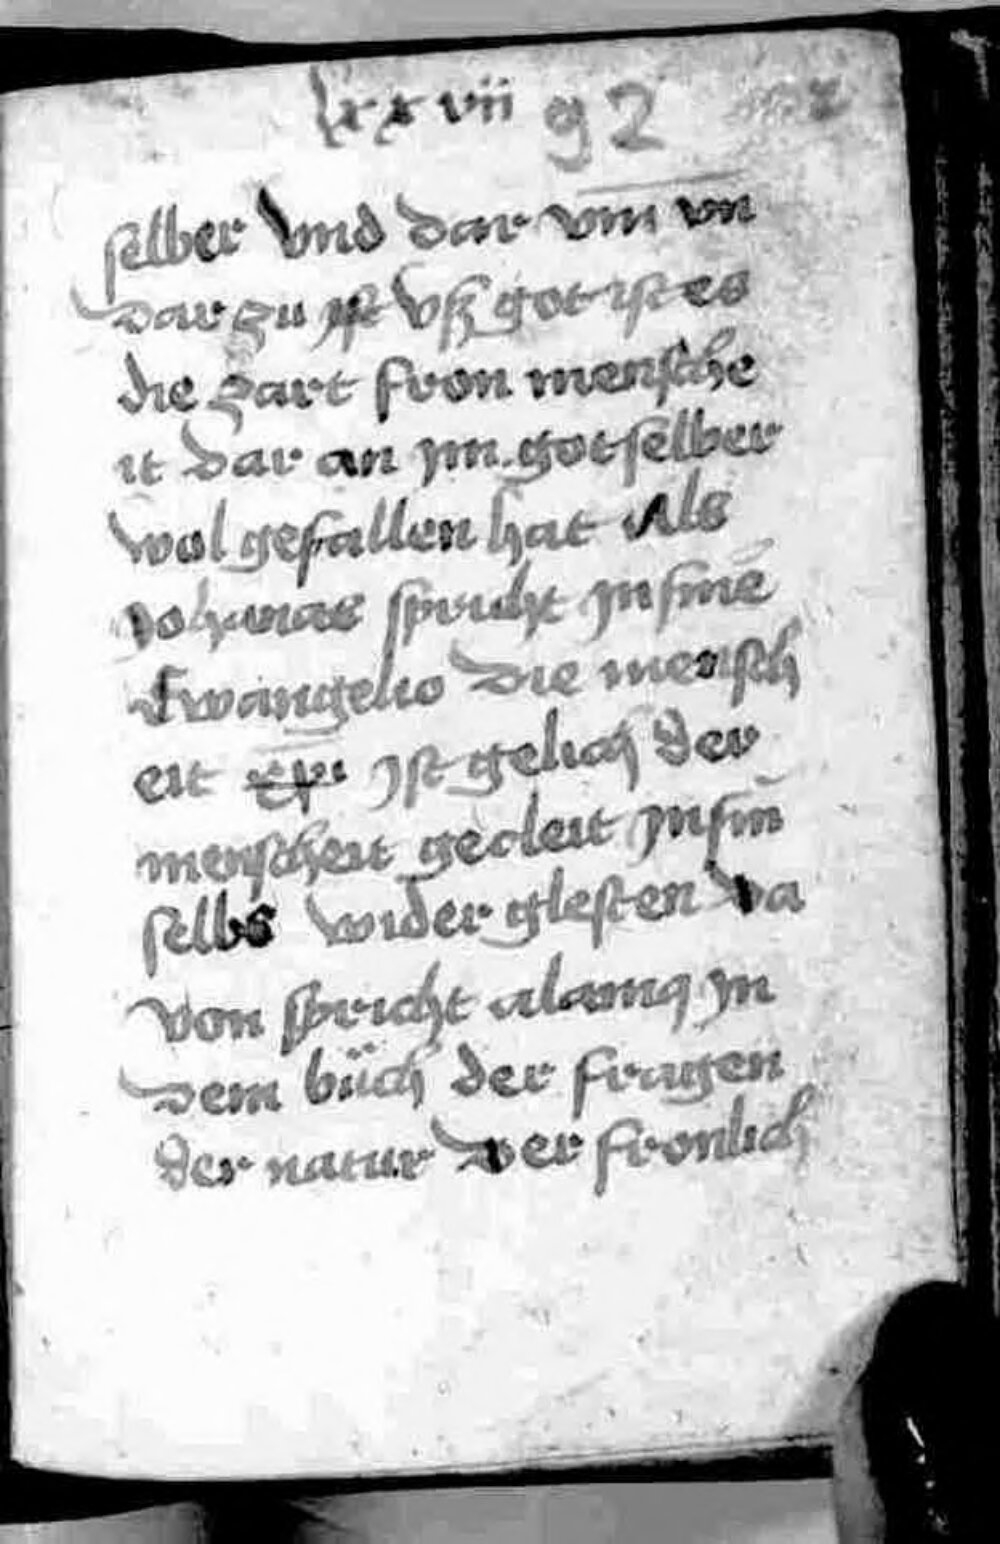 lxxvii 92
selber Vnd dar vm vn
dar zu ist vß got ist es
die zart fron mensche
it dar an ym got selber
wol gefallen hat Als
Johannes spricht yn sinē
Ewangelio Die mensch
eit xp̄i Jst gelich der
menscheit gecleit yn sin
selbs wider glesten da
von spricht alanus yn
dem büch der fragen
der natur der fronlich